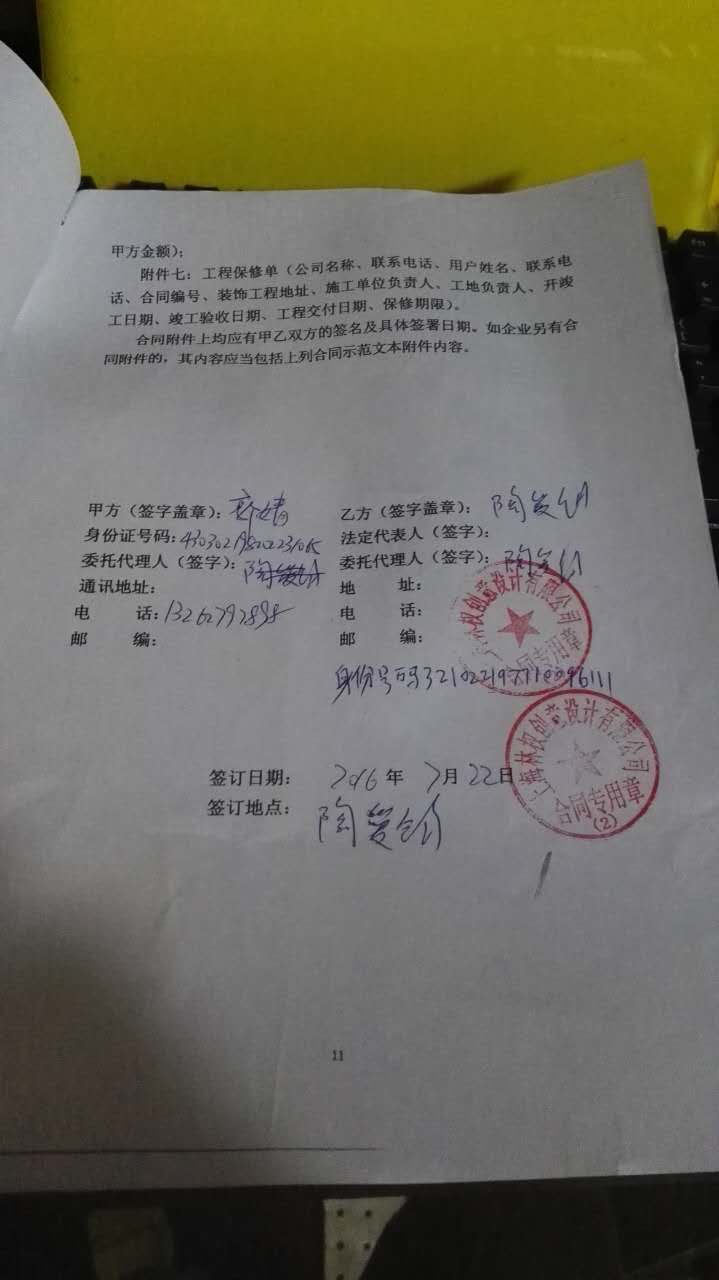 甲方金额);
附件七：工程保修单（公司名称、联系电话、用户姓名、联系电
话、合同编号、装饰工程地址、施工单位负责人、工地负责人、开竣
工日期、竣工验收日期、工程交付日期、保修期限）。
合同附件上均应有甲乙双方的签名及具体签署日期。如企业另有合
同附件的，其内容应当包括上列合同示范文本附件内容。
甲方（签字盖章）：
乙方（签字盖章）：
身份证号码：
法定代表人（签字）：
委托代理人（签字）：
委托代理人（签字）：
通讯地址：
地 址：
电 话：13262792898
电 话：
邮 编：
邮 编：
权创意设计有限公司
合同专用章
身份号码
签订日期： 2016年 7月22日
签订地点：
上海林权创意设计有限公司
合同专用章
(2)
11